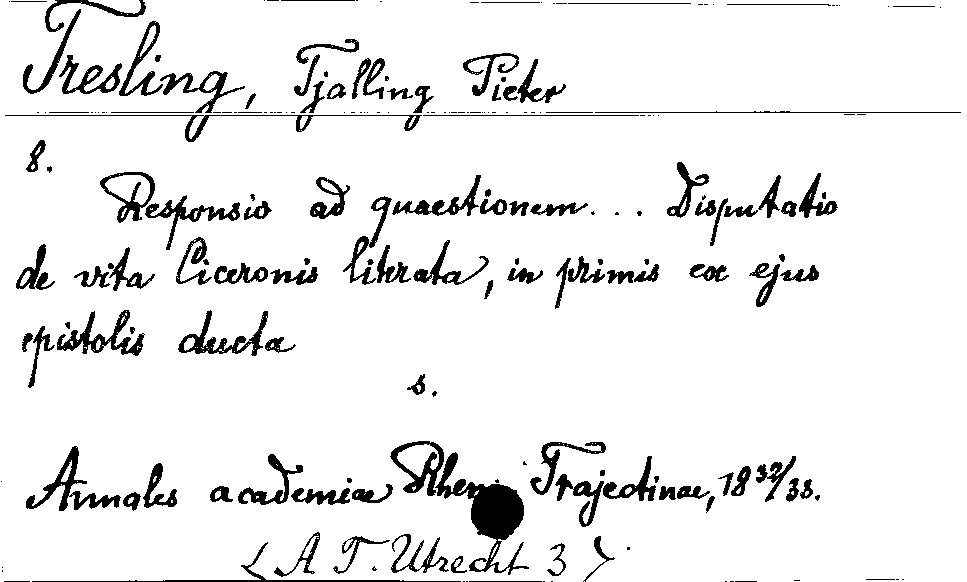 Tresling, Tjalling Pieter
8.
Responsio ad quaestionem... Disputatio
de vita Ciceronis literata, in primis ex ejus
epistolis ducta
s.
Annales academiae Rheno Trajectinae, 18 32/33.
< A T. Utrecht 3 >